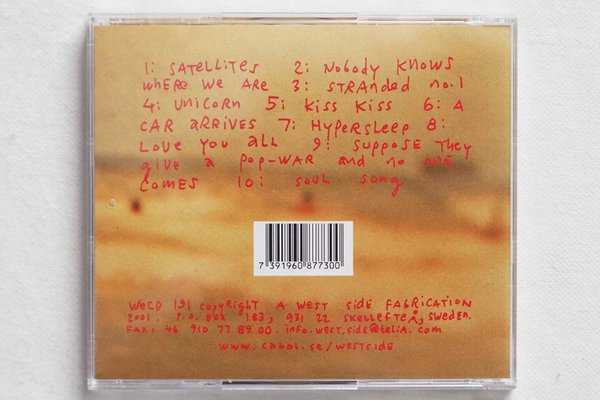 1: SATELLITES 2: NOBODY KNOWS
WHERE WE ARE 3: STRANDED NO.1
4: UNICORN 5: KISS KISS 6: A
CAR ARRIVES 7: HYPERSLEEP 8:
LOVE YOU ALL 9: SUPPOSE THEY
GIVE A POP-WAR AND NO ONE
COMES 10: SOUL SONG
7 391960 877300
WeCD 191 COPYRIGHT A WEST SIDE FABRICATION
2001. P.O. BOX 183, 931 22 SKELLEFTEÅ, SWEDEN.
FAX: 46 910 77 89 00. INFO.WEST.SIDE@TELIA.COM
WWW.CABAL.SE/WESTSIDE